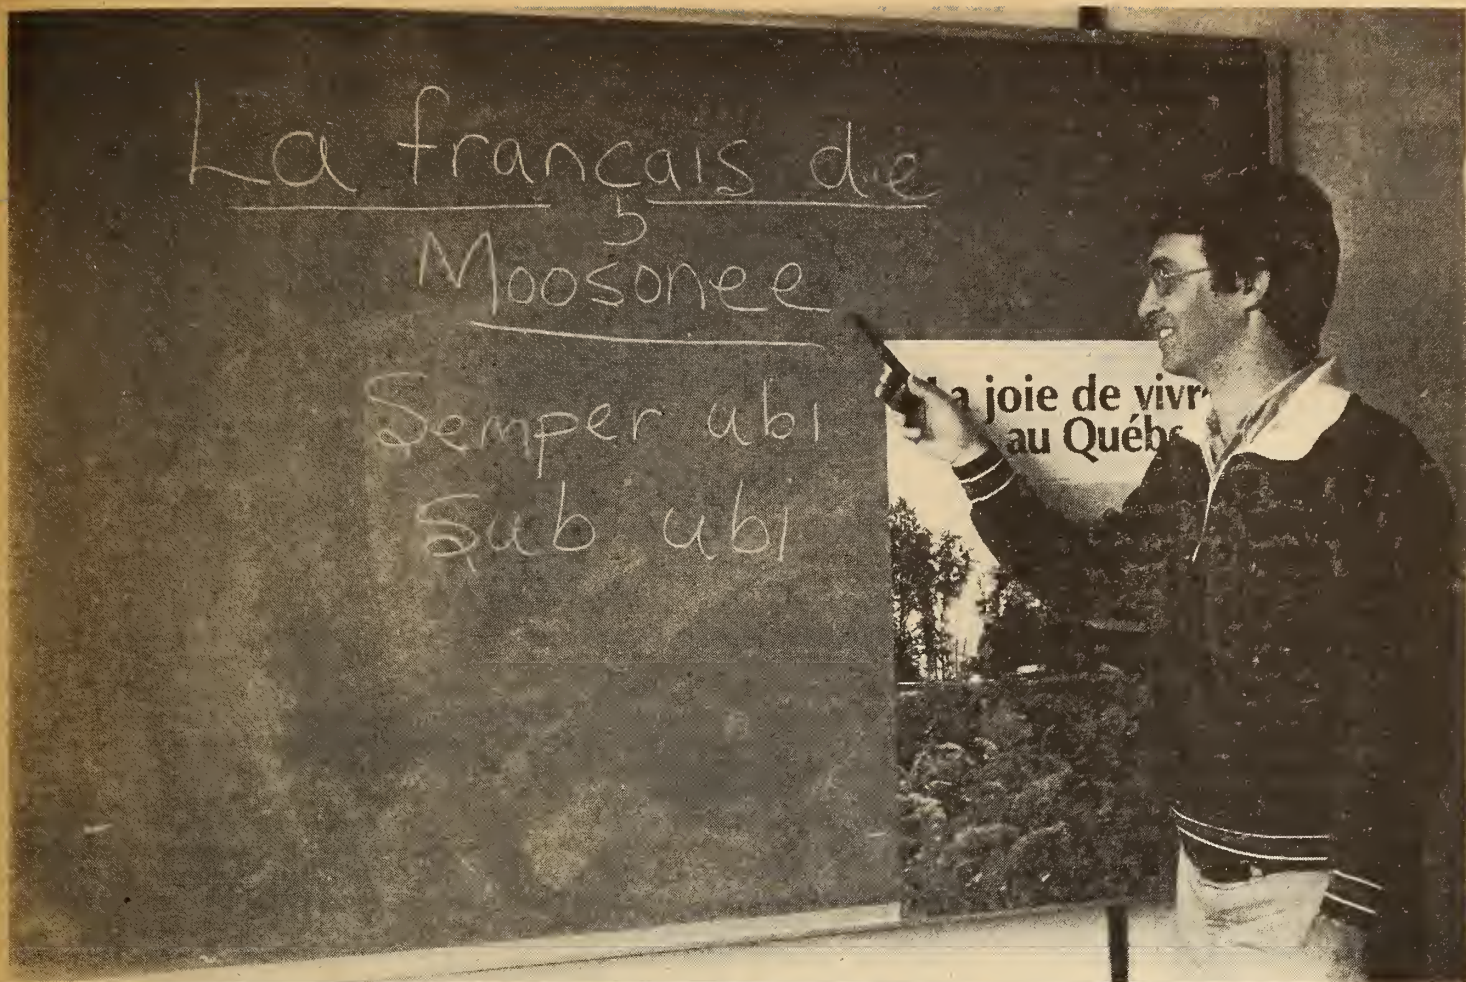 La français de
Moosonee
Semper ubi
Sub ubi
la joie de
au